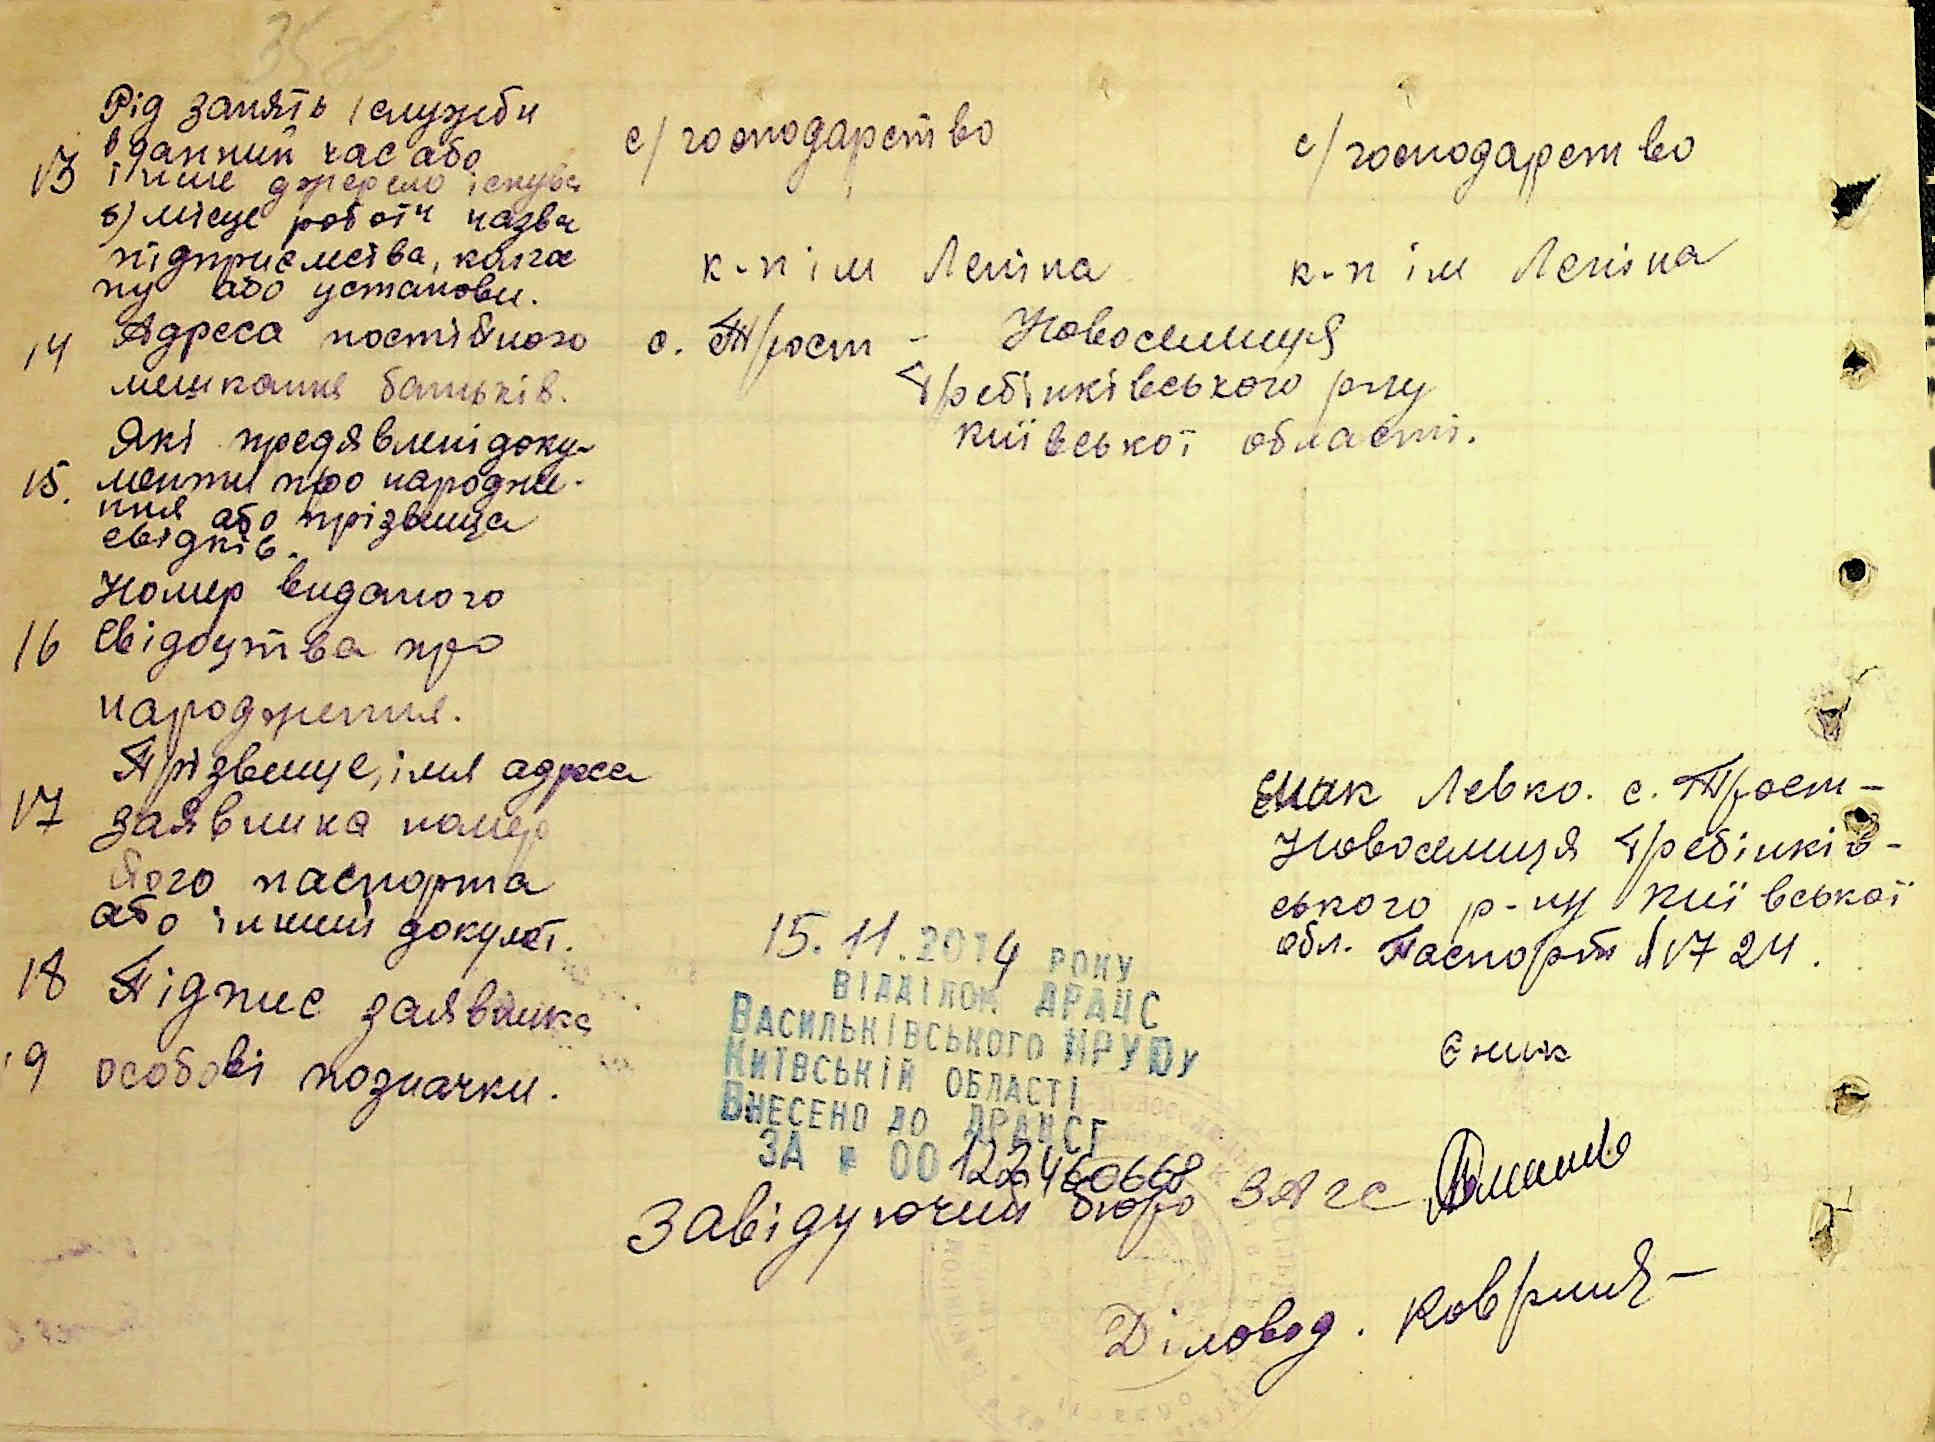 Рід занять і служби
в данний час або
13 інше джерело існува
б) місце роботи назва
підприємства, колгос
пу або установи.
с/господарство с/господарство
к-п ім Леніна к-п ім Леніна
14 Адреса постійного
мешкання батьків.
с. Трост - Новоселиця
Гребінківського р-ну
Київської області.
Які предявлені доку-
15. менти про народже-
ння або прізвища
свідків.
Номер виданого
16 свідоцтва про
народження.
Прізвище, імя адреса
17 заявника номер
його паспорта
або інший докумет.
Левко. с. Трост-
Новоселиця Гребінків-
ського р-ну Київської
обл. Паспорт 1724.
18 Підпис заявника
19 особові позначки.
15.11.2014 РОКУ
ВІДДІЛОМ ДРАЦС
ВАСИЛЬКІВСЬКОГО МРУЮ У
КИЇВСЬКІЙ ОБЛАСТІ
ВНЕСЕНО ДО ДРАЦСГ
ЗА № 00122460668
Завідуючий бюро ЗАГС
Діловод.